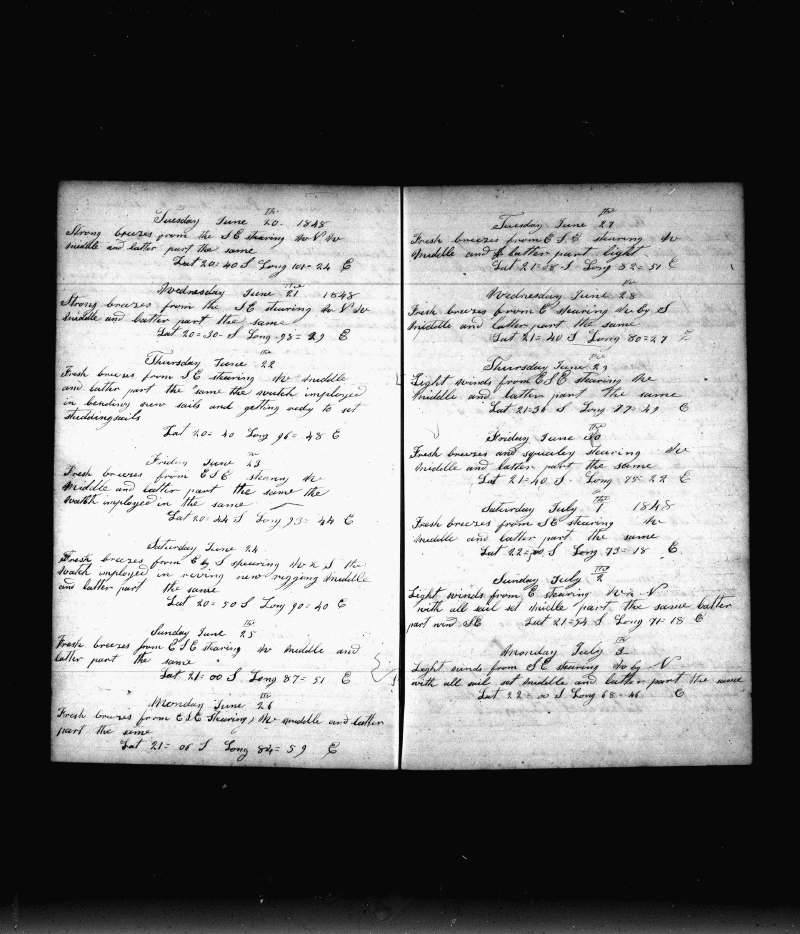 Tuesday June 20th 1848
Strong breezes from the S E stearing W N W
middle and latter part the same
Lat 20=40 S Long 101=24 E
Wednesday June 21 1848
Strong breezes from the S E stearing W N W
middle and latter part the same
Lat 20=30 S Long 98=29 E
Thursday June 22
Fresh breezes from S E stearing W middle
and latter part the same the watch imployed
in bending new sails and getting redy to set
studdingsails
Lat 20=40 Long 96=48 E
Friday June 23
Fresh breezes from E S E stearing W
Middle and latter part the same the
watch imployed in the same
Lat 20=44 S Long 93=44 E
Saturday June 24
Fresh breezes from E by S stearing W the
watch imployed in reiving new rigging middle
and latter part the same
Lat 20=50 S Long 90=40 E
Sunday June 25
Fresh breezes from E S E stearing W middle and
latter part the same
Lat 21=00 S Long 87=51 E
Monday June 26
Fresh breezes from E S E stearing W middle and latter
part the same
Lat 21=06 S Long 84=59 E
Tuesday June 27
Fresh breezes from E S E stearing W
middle and latter part light
Lat 21=18 S Long 82=51 E
Wednesday June 28
Fresh breezes from E stearing W by S
middle and latter part the same
Lat 21=40 S Long 80=27 E
Thursday June 29
Light winds from E S E stearing W
middle and latter part the same
Lat 21=36 S Long 77=49 E
Friday June 30
Fresh breezes and squaley stearing W
middle and latter part the same
Lat 21=40 S Long 75=22 E
Saturday July 1 1848
Fresh breezes from S E stearing W
middle and latter part the same
Lat 22=00 S Long 73=18 E
Sunday July 2
Light winds from E stearing W N
with all sail set middle part the same latter
part wind S E Lat 21=54 S Long 71=18 E
Monday July 3
Light winds from S E stearing W by N
with all sail set middle and latter part the same
Lat 22=00 S Long 68=46 E